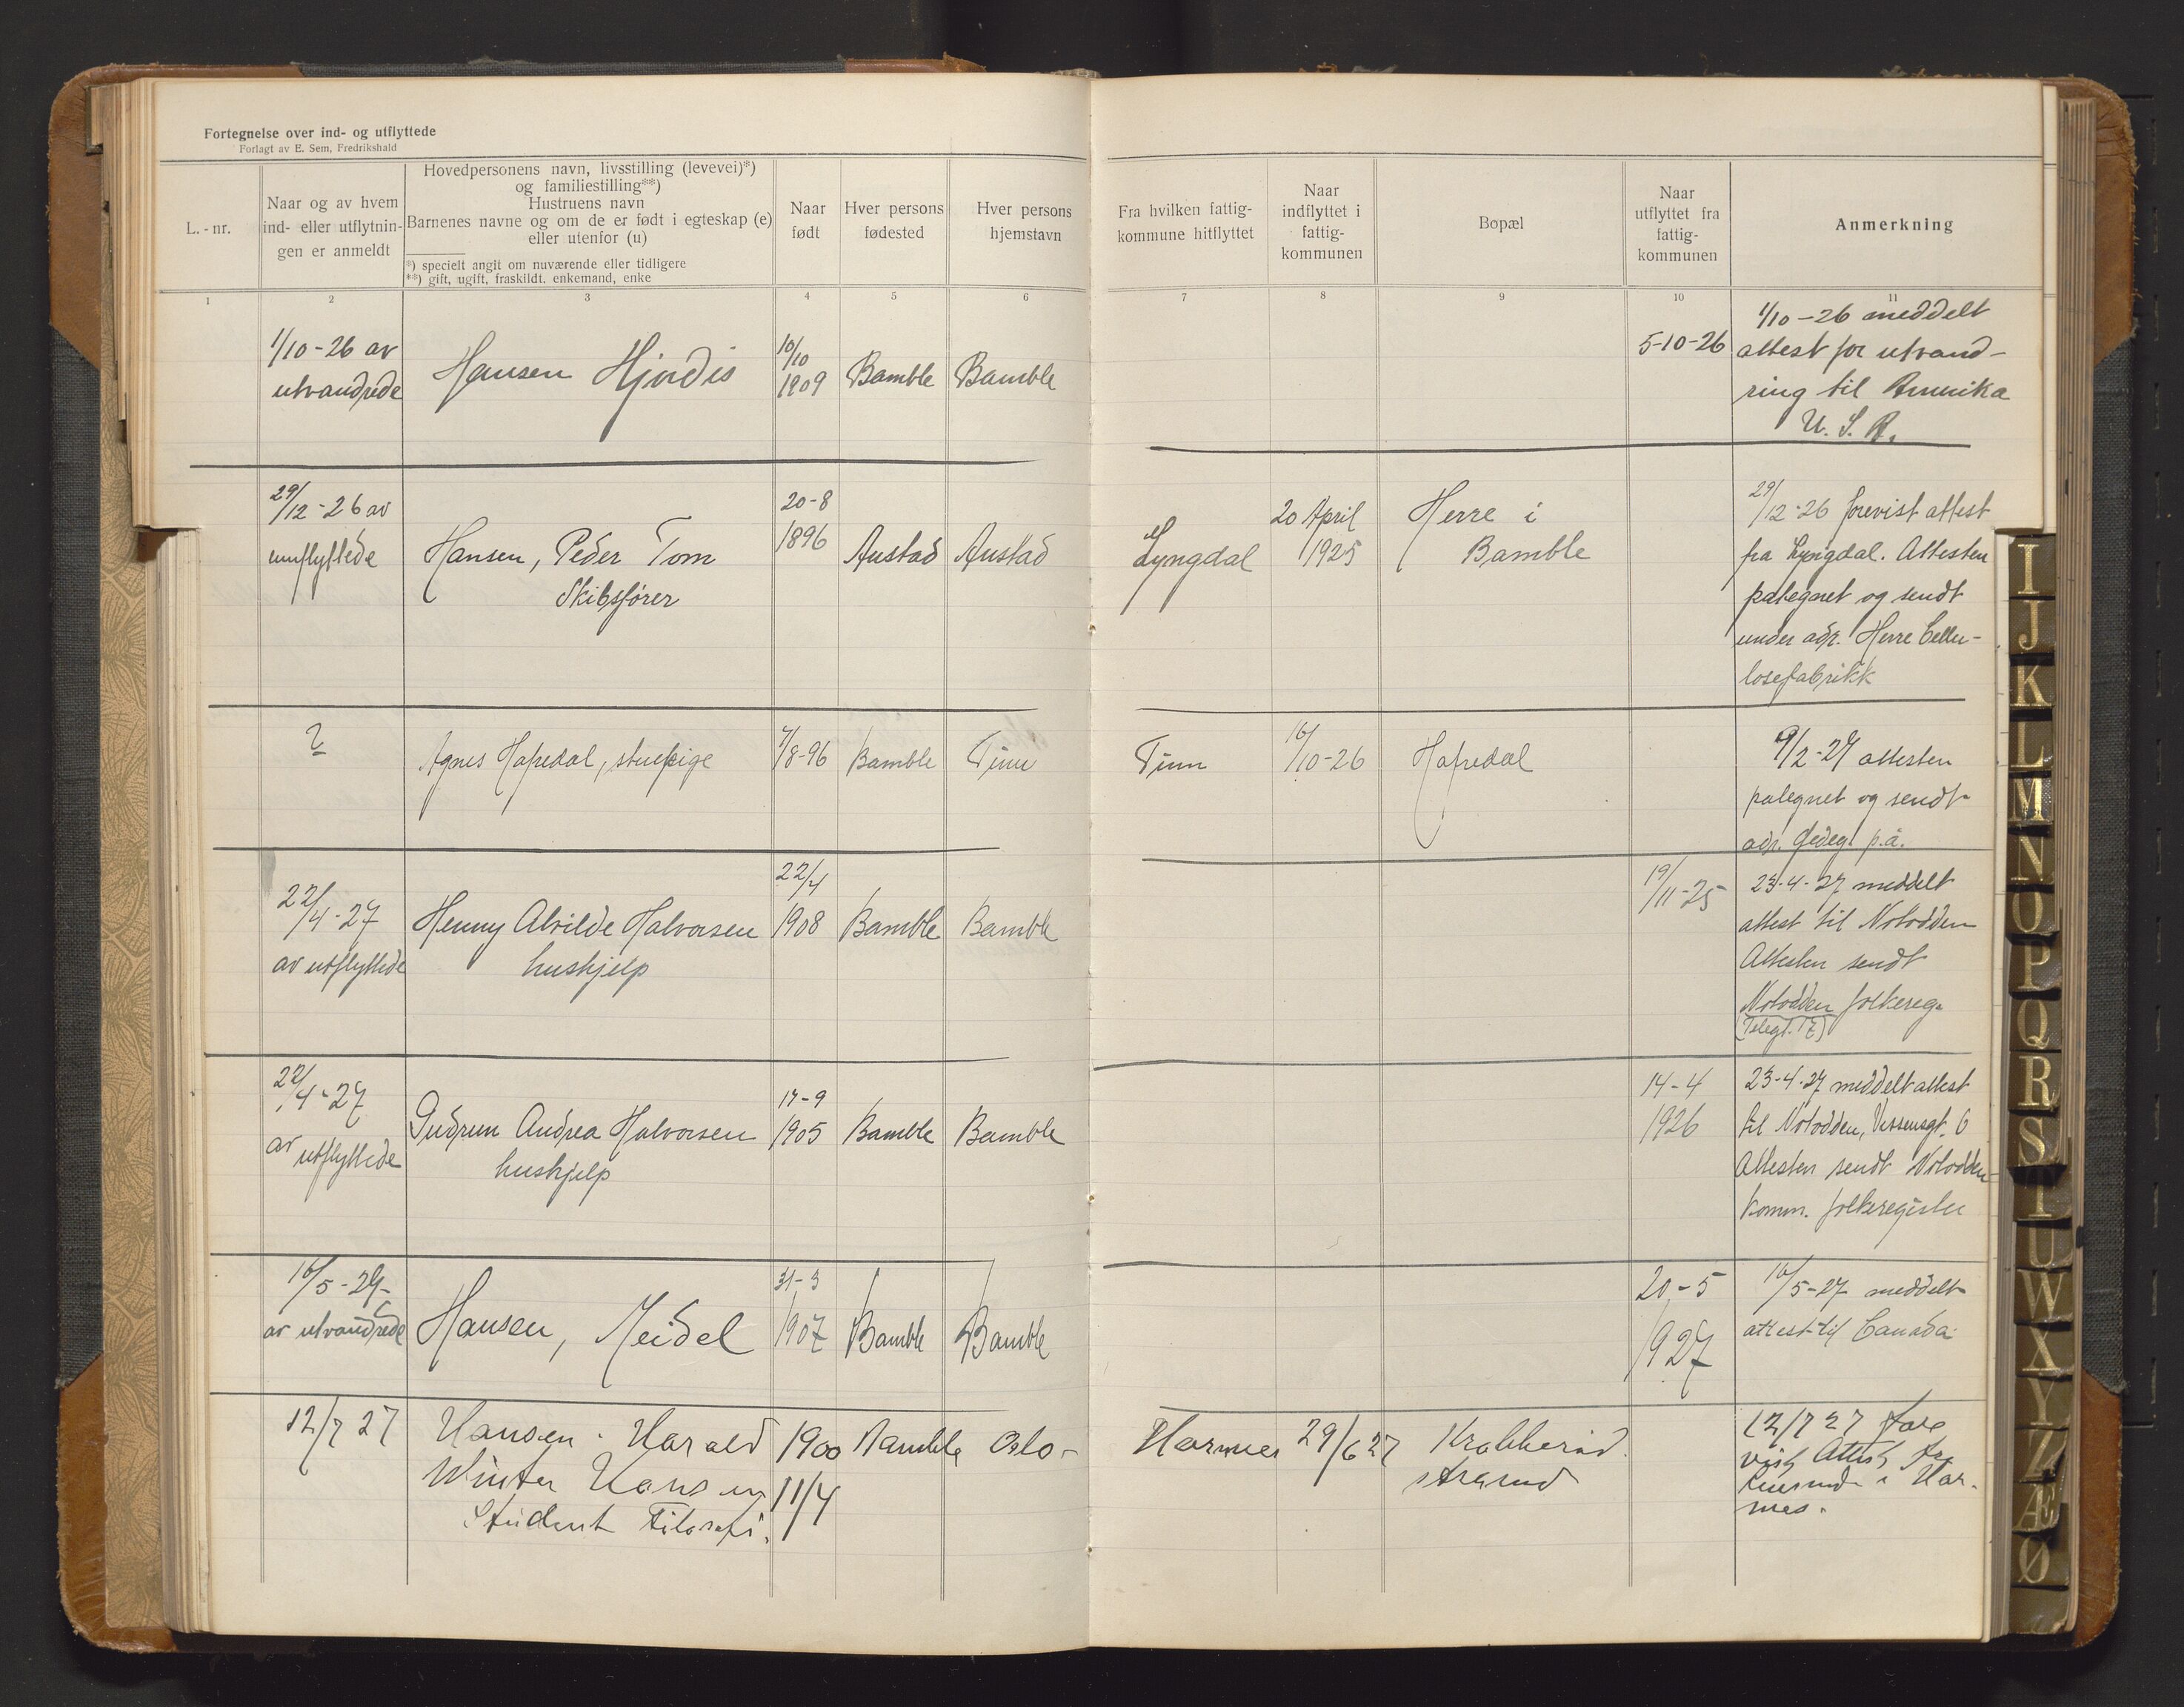 Fortegnelse over ind- og utflyttede
Forlagt av E. Sem, Fredrikshald
L.-nr.
Naar og av hvem
ind- eller utflytnin-
gen er anmeldt
Hovedpersonens navn, livsstilling (levevei)*)
og familiestilling**)
Hustruens navn
Barnenes navne og om de er født i egteskap (e)
eller utenfor (u)
*) specielt angit om nuværende eller tidligere
**) gift, ugift, fraskildt. enkemand, enke
Naar
født
Hver persons
fødested
Hver persons
hjemstavn
Fra hvilken fattig-
kommune hitflyttet
Naar
indflyttet i
fattig-
kommunen
Bopæl
Naar
utflyttet fra
fattig-
kommunen
Anmerkning
1 2 3 4 5 6 7 8 9 10 11
1/10-26 av
utvandrede
Hansen Hjørdis
10/10
1909
Bamble
Bamble
5-10-26
1/10-26 meddelt
attest for utvand-
ring til Amerika
U. S. A.
29/12-26 av
innflyttede
Hansen, Peder Tom
Skibsfører
20-8
1896
Austad
Austad
Lyngdal
20 April
1925
Herre i
Bamble
29/12-26 forevist attest
fra Lyngdal. Attesten
påtegnet og sendt
under adr. Herre Cellu-
losefabrikk
?
Agnes Hafredal, stuepige
7/8-96
Bamble
Tinn
Tinn
16/10-26
Hafredal
9/2-27 attesten
påtegnet og sendt
adr. p.å.
22/4-27
av utflyttede
Henny Alvilde Halvorsen
hushjelp
22/4
1908
Bamble
Bamble
19/11-25
23-4-27 meddelt
attest til Notodden
Attesten sendt
Notodden folkereg.
(Telegt. 17)
22/4-27
av utflyttede
Gudrun Andrea Halvorsen
hushjelp
17-9
1905
Bamble
Bamble
14-4
1926
23-4-27 meddelt attest
til Notodden, 6
Attesten sendt Notodden
komm. folkeregister
16/5-27-
av utvandrede
Hansen, Meidel
31-3
1907
Bamble
Bamble
20-5
1927
16/5-27 meddelt
attest til Canada
12/7 27
Hansen Harald
Winter Hansen
Student Filosofi.
1900
11/4
Bamble
Oslo-
29/6 27
Krabberød
strand
12/7 27 fore
vist Attest fra
I
J
K
L
M
N
O
P
Q
R
S
T
U
W
X
Y
Z
Æ
Ø